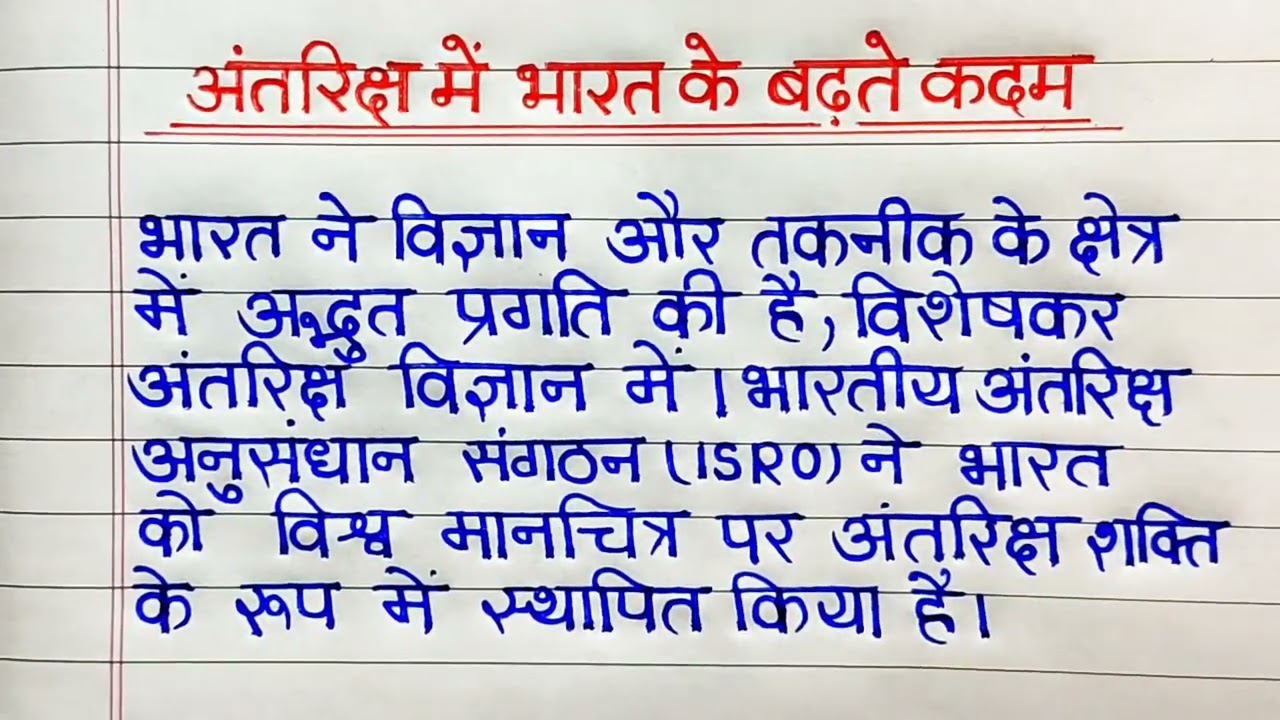 अंतरिक्ष में भारत के बढ़ते कदम
भारत ने विज्ञान और तकनीक के क्षेत्र
में अद्भुत प्रगति की है, विशेषकर
अंतरिक्ष विज्ञान में । भारतीय अंतरिक्ष
अनुसंधान संगठन (ISRO) ने भारत
को विश्व मानचित्र पर अंतरिक्ष शक्ति
के रूप में स्थापित किया है।